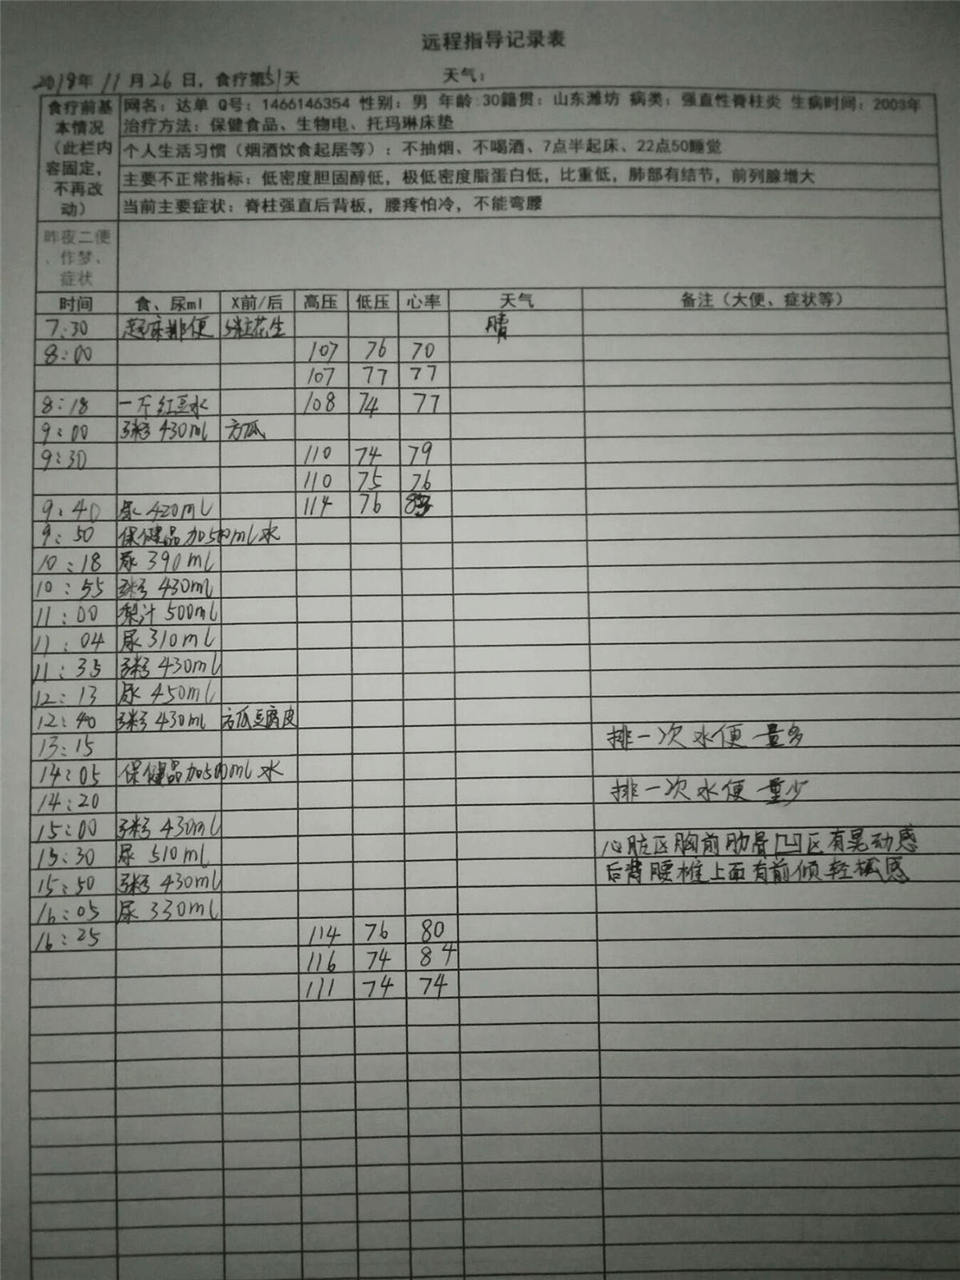 远程指导记录表
2018年 11月 26日，食疗第51天 天气：
食疗前基本情况（此栏内容固定，不再改动）
网名：达单 Q号：1466146354 性别：男 年龄:30籍贯：山东潍坊 病类：强直性脊柱炎 生病时间：2003年
治疗方法：保健食品、生物电、托玛琳床垫
个人生活习惯（烟酒饮食起居等）：不抽烟、不喝酒、7点半起床、22点50睡觉
主要不正常指标：低密度胆固醇低，极低密度脂蛋白低，比重低，肺部有结节，前列腺增大
当前主要症状：脊柱强直后背板，腰疼怕冷，不能弯腰
昨夜二便、作梦、症状
时间 食、尿ml X前/后 高压 低压 心率 天气 备注（大便、症状等）
7:30 起床排便 5粒花生 晴
8:00 107 76 70
107 77 77
8:18 一下红豆水 108 74 77
9:00 粥 430ml 方瓜
9:30 110 74 79
110 75 76
9:40 尿 420ml 114 76
9:50 保健品加500ml水
10:18 尿 390ml
10:55 粥 430ml
11:00 梨汁 500ml
11:04 尿 310ml
11:35 粥 430ml
12:13 尿 450ml
12:40 粥 430ml 方瓜豆腐皮
13:15 排一次水便 量多
14:05 保健品加500ml水
14:20 排一次水便 量少
15:00 粥 430ml
15:30 尿 510ml 心脏区胸前肋骨凹区有晃动感
15:50 粥 430ml 后背腰椎上面有前倾轻松感
16:05 尿 330ml
16:25 114 76 80
116 74 84
111 74 74